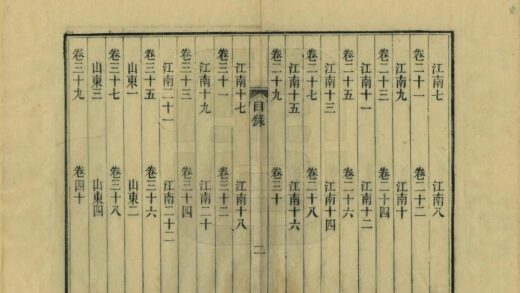 江南七 江南八
卷二十一 卷二十二
江南九 江南十
卷二十三 卷二十四
江南十一 江南十二
卷二十五 卷二十六
江南十三 江南十四
卷二十七 卷二十八
江南十五 江南十六
卷二十九 卷三十
目錄 二
江南十七 江南十八
卷三十一 卷三十二
江南十九 江南二十
卷三十三 卷三十四
江南二十一 江南二十二
卷三十五 卷三十六
山東一 山東二
卷三十七 卷三十八
山東三 山東四
卷三十九 卷四十